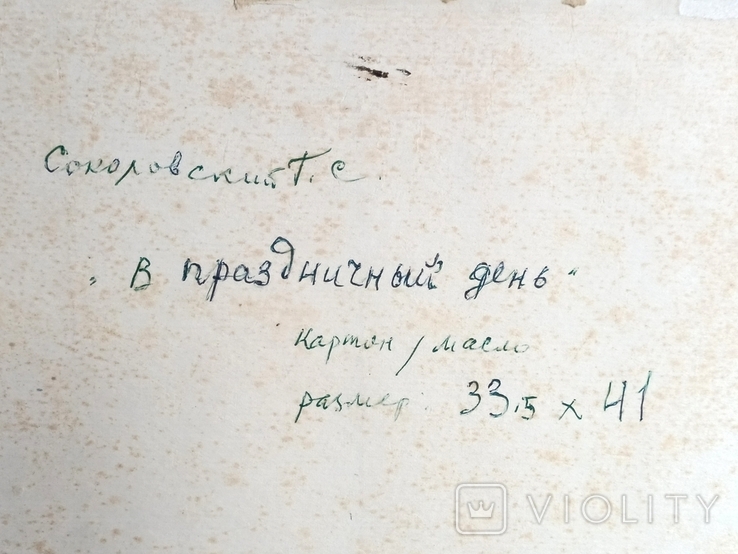 Соколовский Г. С.
„В праздничный день"
картон / масло
размер: 33,5 x 41
VIOLITY